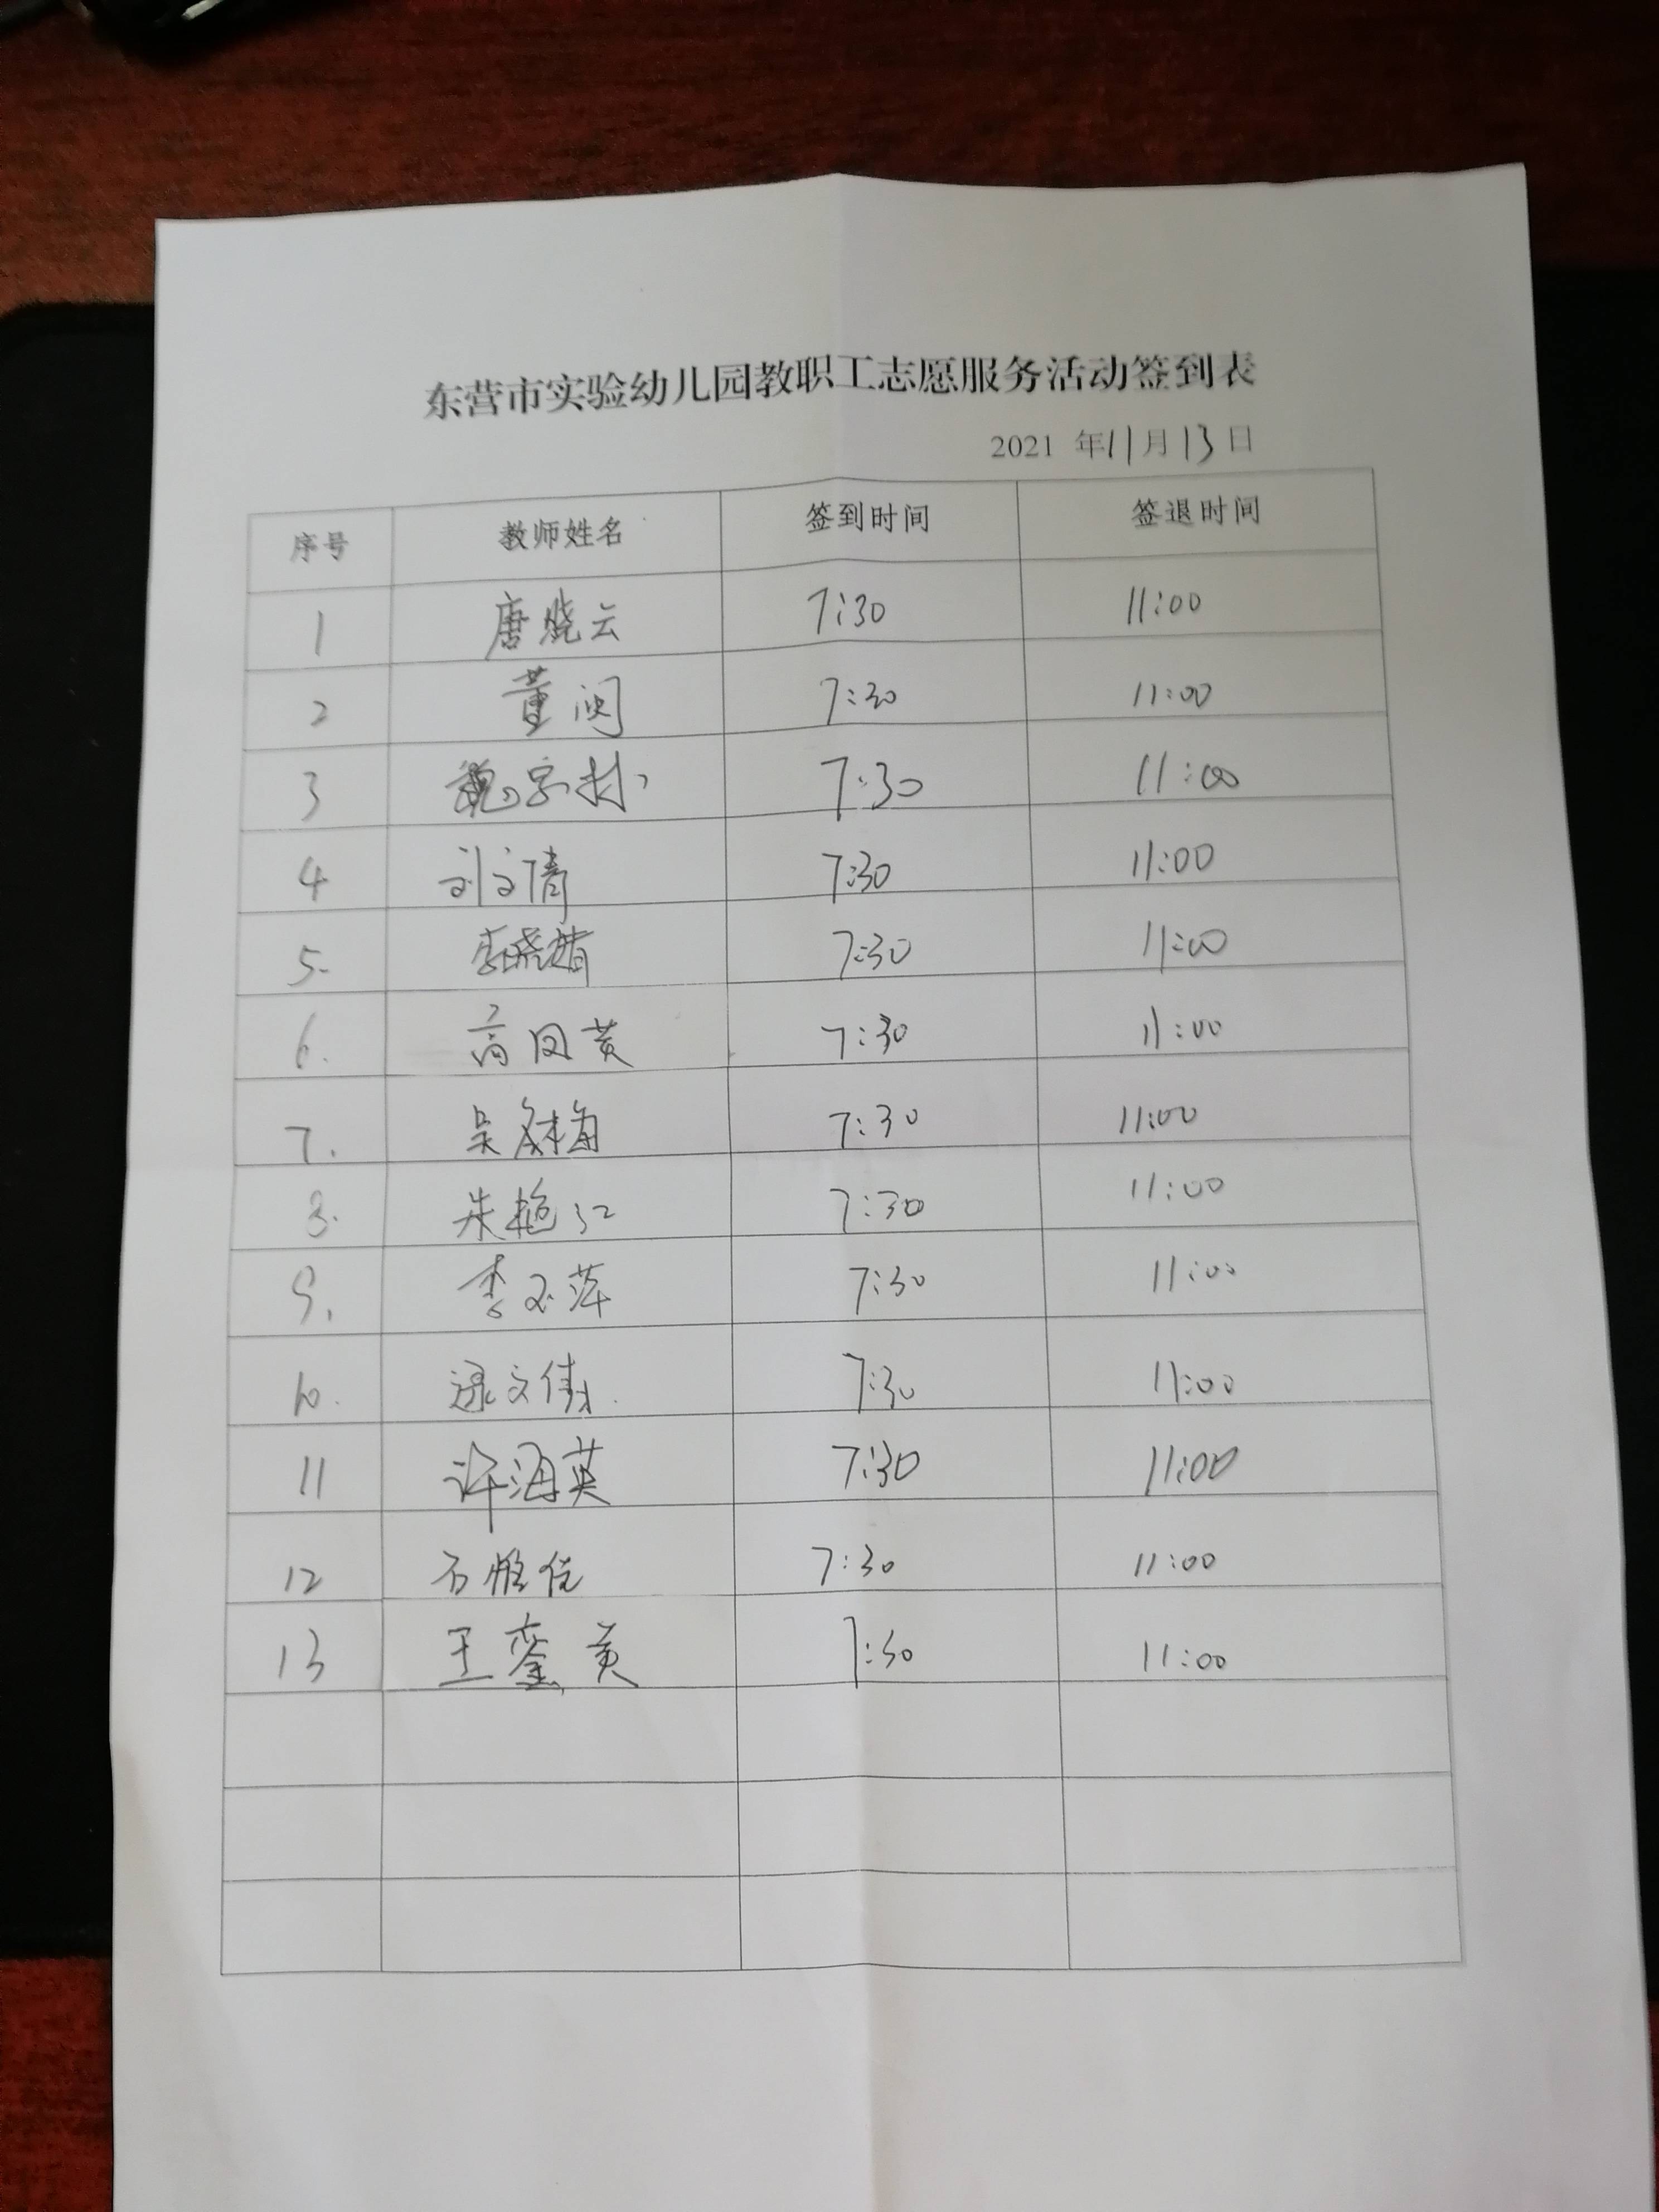 东营市实验幼儿园教职工志愿服务活动签到表
2021 年11月13日
序号 教师姓名 签到时间 签退时间
1 唐晓云 7:30 11:00
2 董闽 7:30 11:00
3 魏 7:30 11:00
4 刘文倩 7:30 11:00
5. 李晓婧 7:30 11:00
6. 高凤英 7:30 11:00
7. 吴梅 7:30 11:00
8. 朱艳红 7:30 11:00
9. 李玉萍 7:30 11:00
10. 逯文倩 7:30 11:00
11 许海英 7:30 11:00
12 石 7:30 11:00
13 王銮英 7:30 11:00